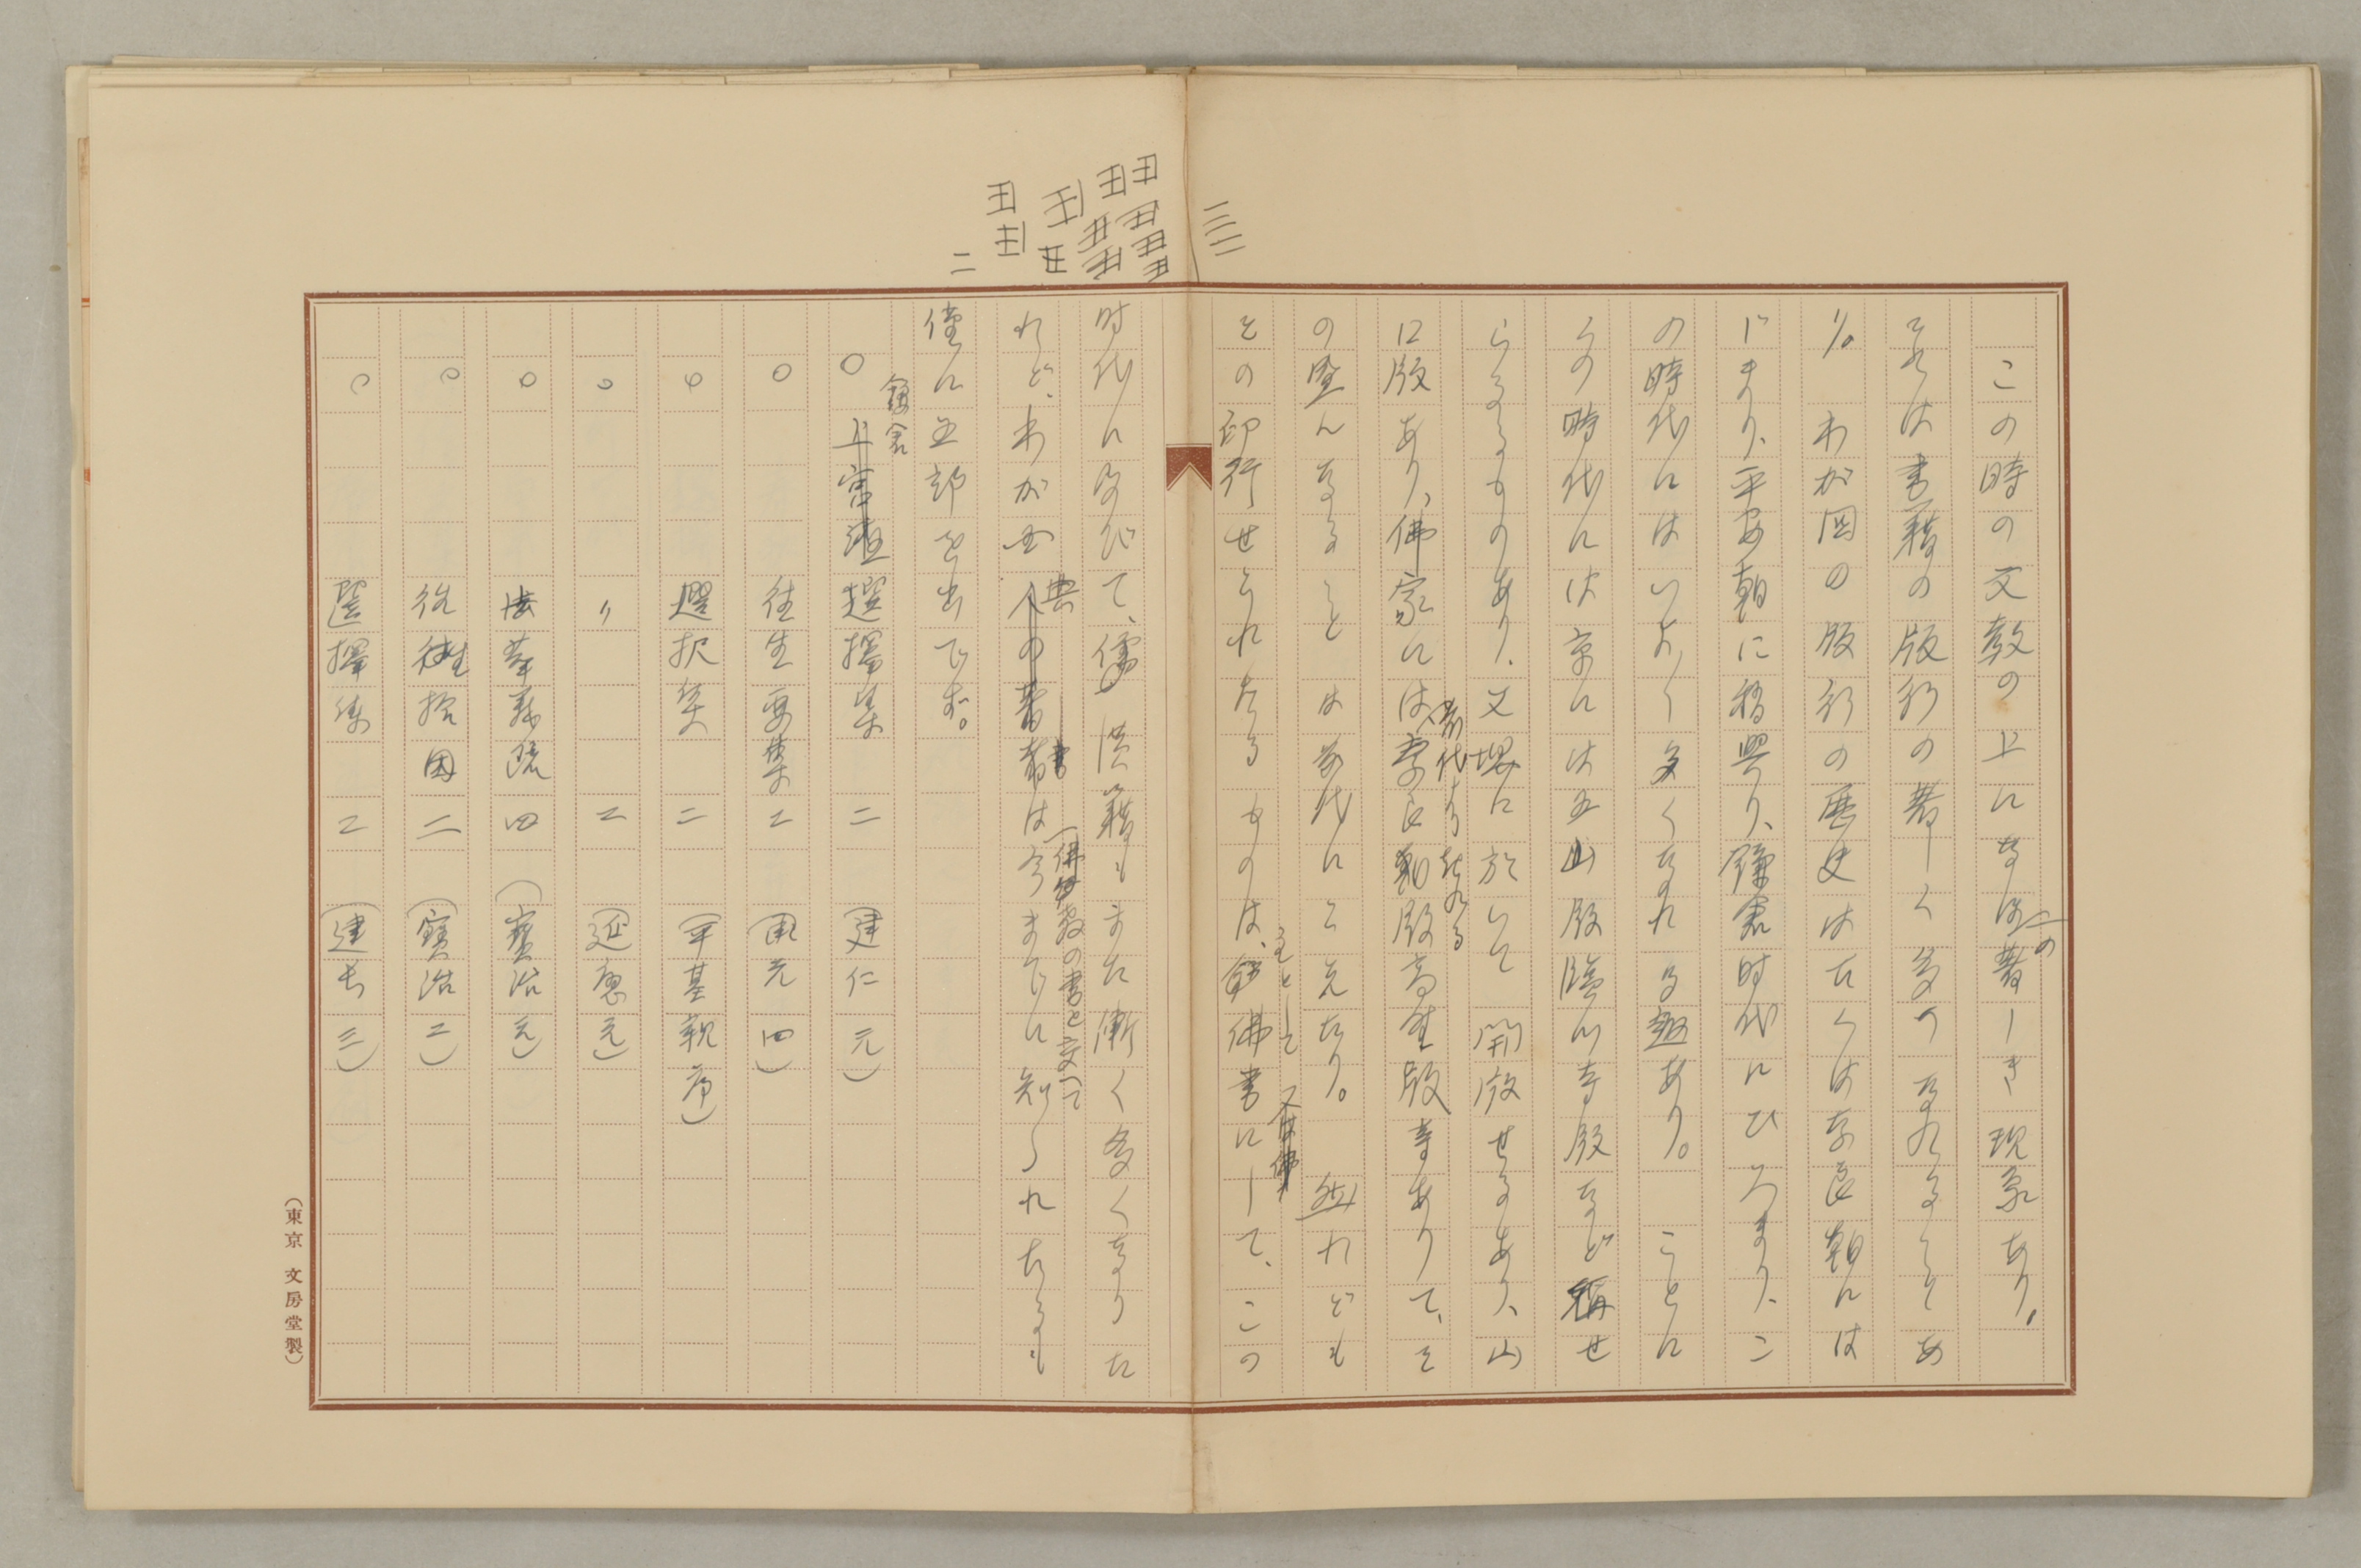 この時の文教の上になほ一の著しき現象あり。
それは書籍の版行の著しく多くなれることあ
り。わが国の版行の歴史は古くは奈良朝には
じまり、平安朝に稍興り、鎌倉時代にひろまり、こ
の時代にはいよ〳〵多くなれる趣あり。ことに
この時代には京には五山版臨川寺版など稱せ
らるるものあり、又堺に於いて開版せるあり、山
口版あり、佛家には前代より起れる奈良版高野版等ありて、そ
の盛んなることは前代にこえたり。然れども
その印行せられたるものは、主として佛書にして、この
時代に及びて、儒書漢籍もまた漸く多くなりた
れど、わが国典の書は佛教の書と交へて今までに知られたるも
僅に五部を出でず。
鎌倉
○選擇集 二 (建仁元)
○往生要集 二 (承元四)
○選択集 二 (平基親序)
○〃 二 (延應元)
○法華義疏 四 (寳治元)
○往生拾因 二 (寳治二)
○選擇集 二 (建長三)
(東京 文房堂製)